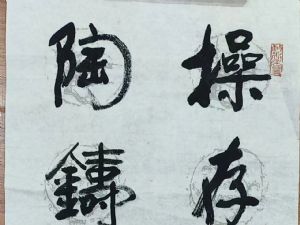 操存
陶鑄